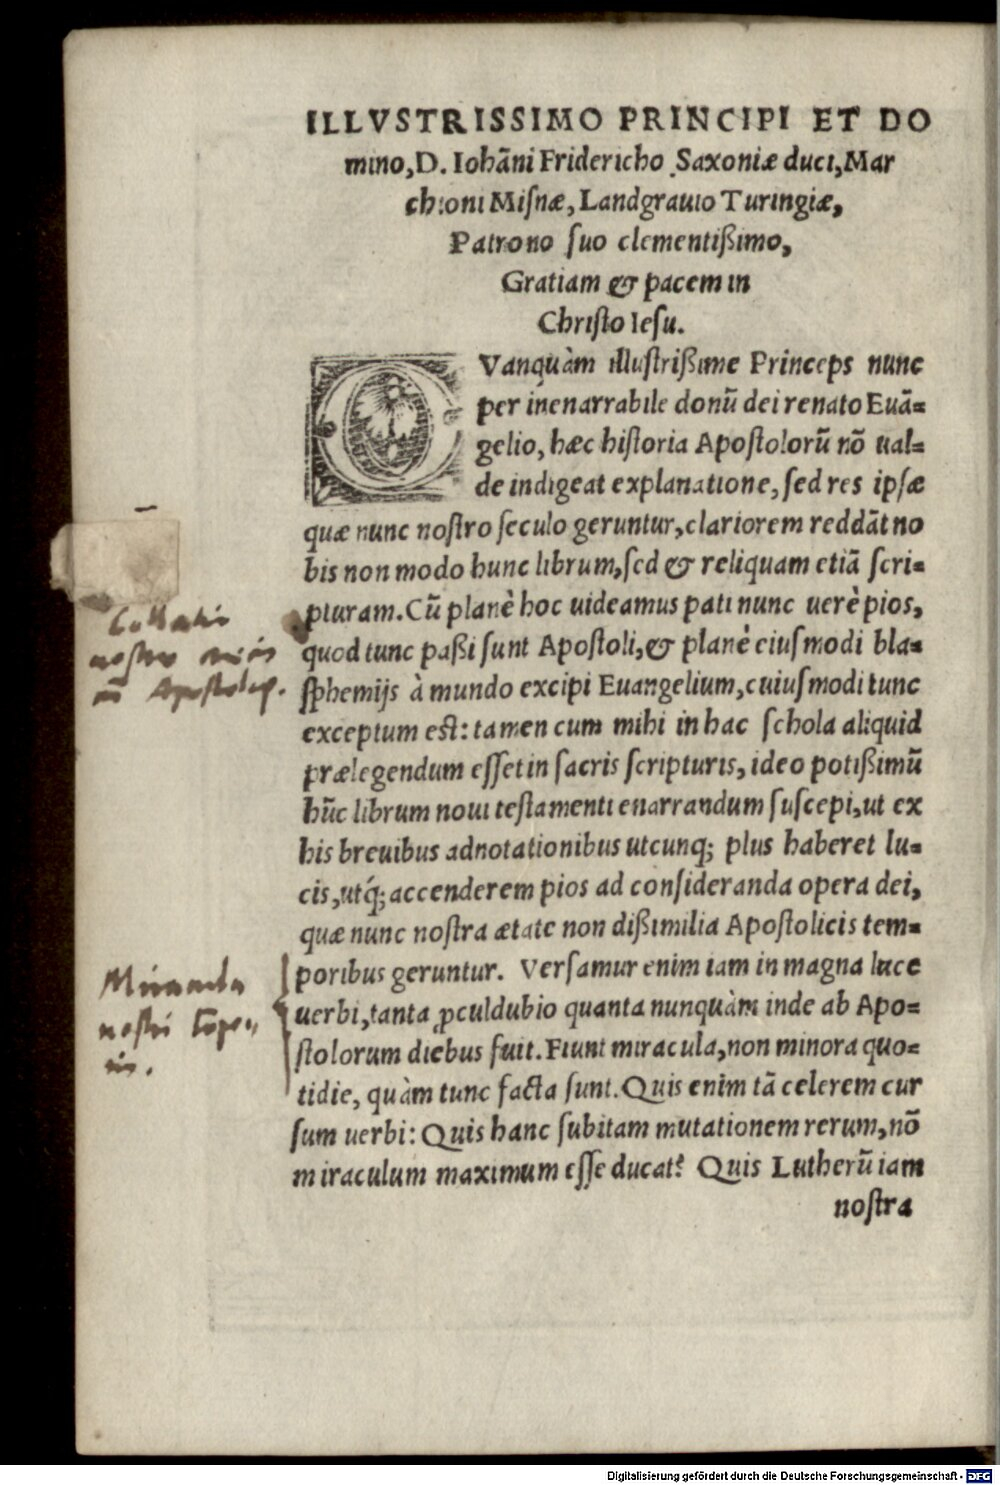 ILLVSTRISSIMO PRINCIPI ET DO
mino, D. Iohãni Fridericho Saxoniæ duci, Mar
chioni Misnæ, Landgrauio Turingiæ,
Patrono suo clementißimo,
Gratiam & pacem in
Christo Iesu.
QVanquàm illustrißime Princeps nunc
per inenarrabile donũ dei renato Euã=
gelio, hæc historia Apostolorũ nõ ual=
de indigeat explanatione, sed res ipsæ
quæ nunc nostro seculo geruntur, clariorem reddãt no
bis non modo hunc librum, sed & reliquam etiã scri=
pturam. Cũ planè hoc uideamus pati nunc uerè pios,
quod tunc paßi sunt Apostoli, & planè eiusmodi bla=
sphemijs à mundo excipi Euangelium, cuiusmodi tunc
exceptum est: tamen cum mihi in hac schola aliquid
prælegendum esset in sacris scripturis, ideo potißimũ
hũc librum noui testamenti enarrandum suscepi, ut ex
his breuibus adnotationibus utcunq; plus haberet lu=
cis, utq́; accenderem pios ad consideranda opera dei,
quæ nunc nostra ætate non dißimilia Apostolicis tem=
poribus geruntur. Versamur enim iam in magna luce
uerbi, tanta ꝓculdubio quanta nunquàm inde ab Apo=
stolorum diebus fuit. Fiunt miracula, non minora quo=
tidie, quàm tunc facta sunt. Quis enim tã celerem cur
sum uerbi: Quis hanc subitam mutationem rerum, nõ
miraculum maximum esse ducat? Quis Lutherũ iam
nostra
Collatio
nostre
Apostolor.
Miranda
nostri
Digitalisierung gefördert durch die Deutsche Forschungsgemeinschaft - DFG